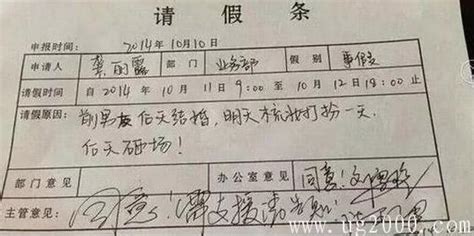 请假条
申报时间: 2014年10月10日
申请人 龚丽露 部门 业务部 假别 事假
请假时间 自 2014 年 10 月 11 日 9:00 至 10 月 12 日 18:00 止
请假原因: 前男友后天结婚,明天梳妆打扮一天,
后天砸场!
部门意见 办公室意见 同意!
主管意见 同意!需支援请告知!
www.ug2000.com